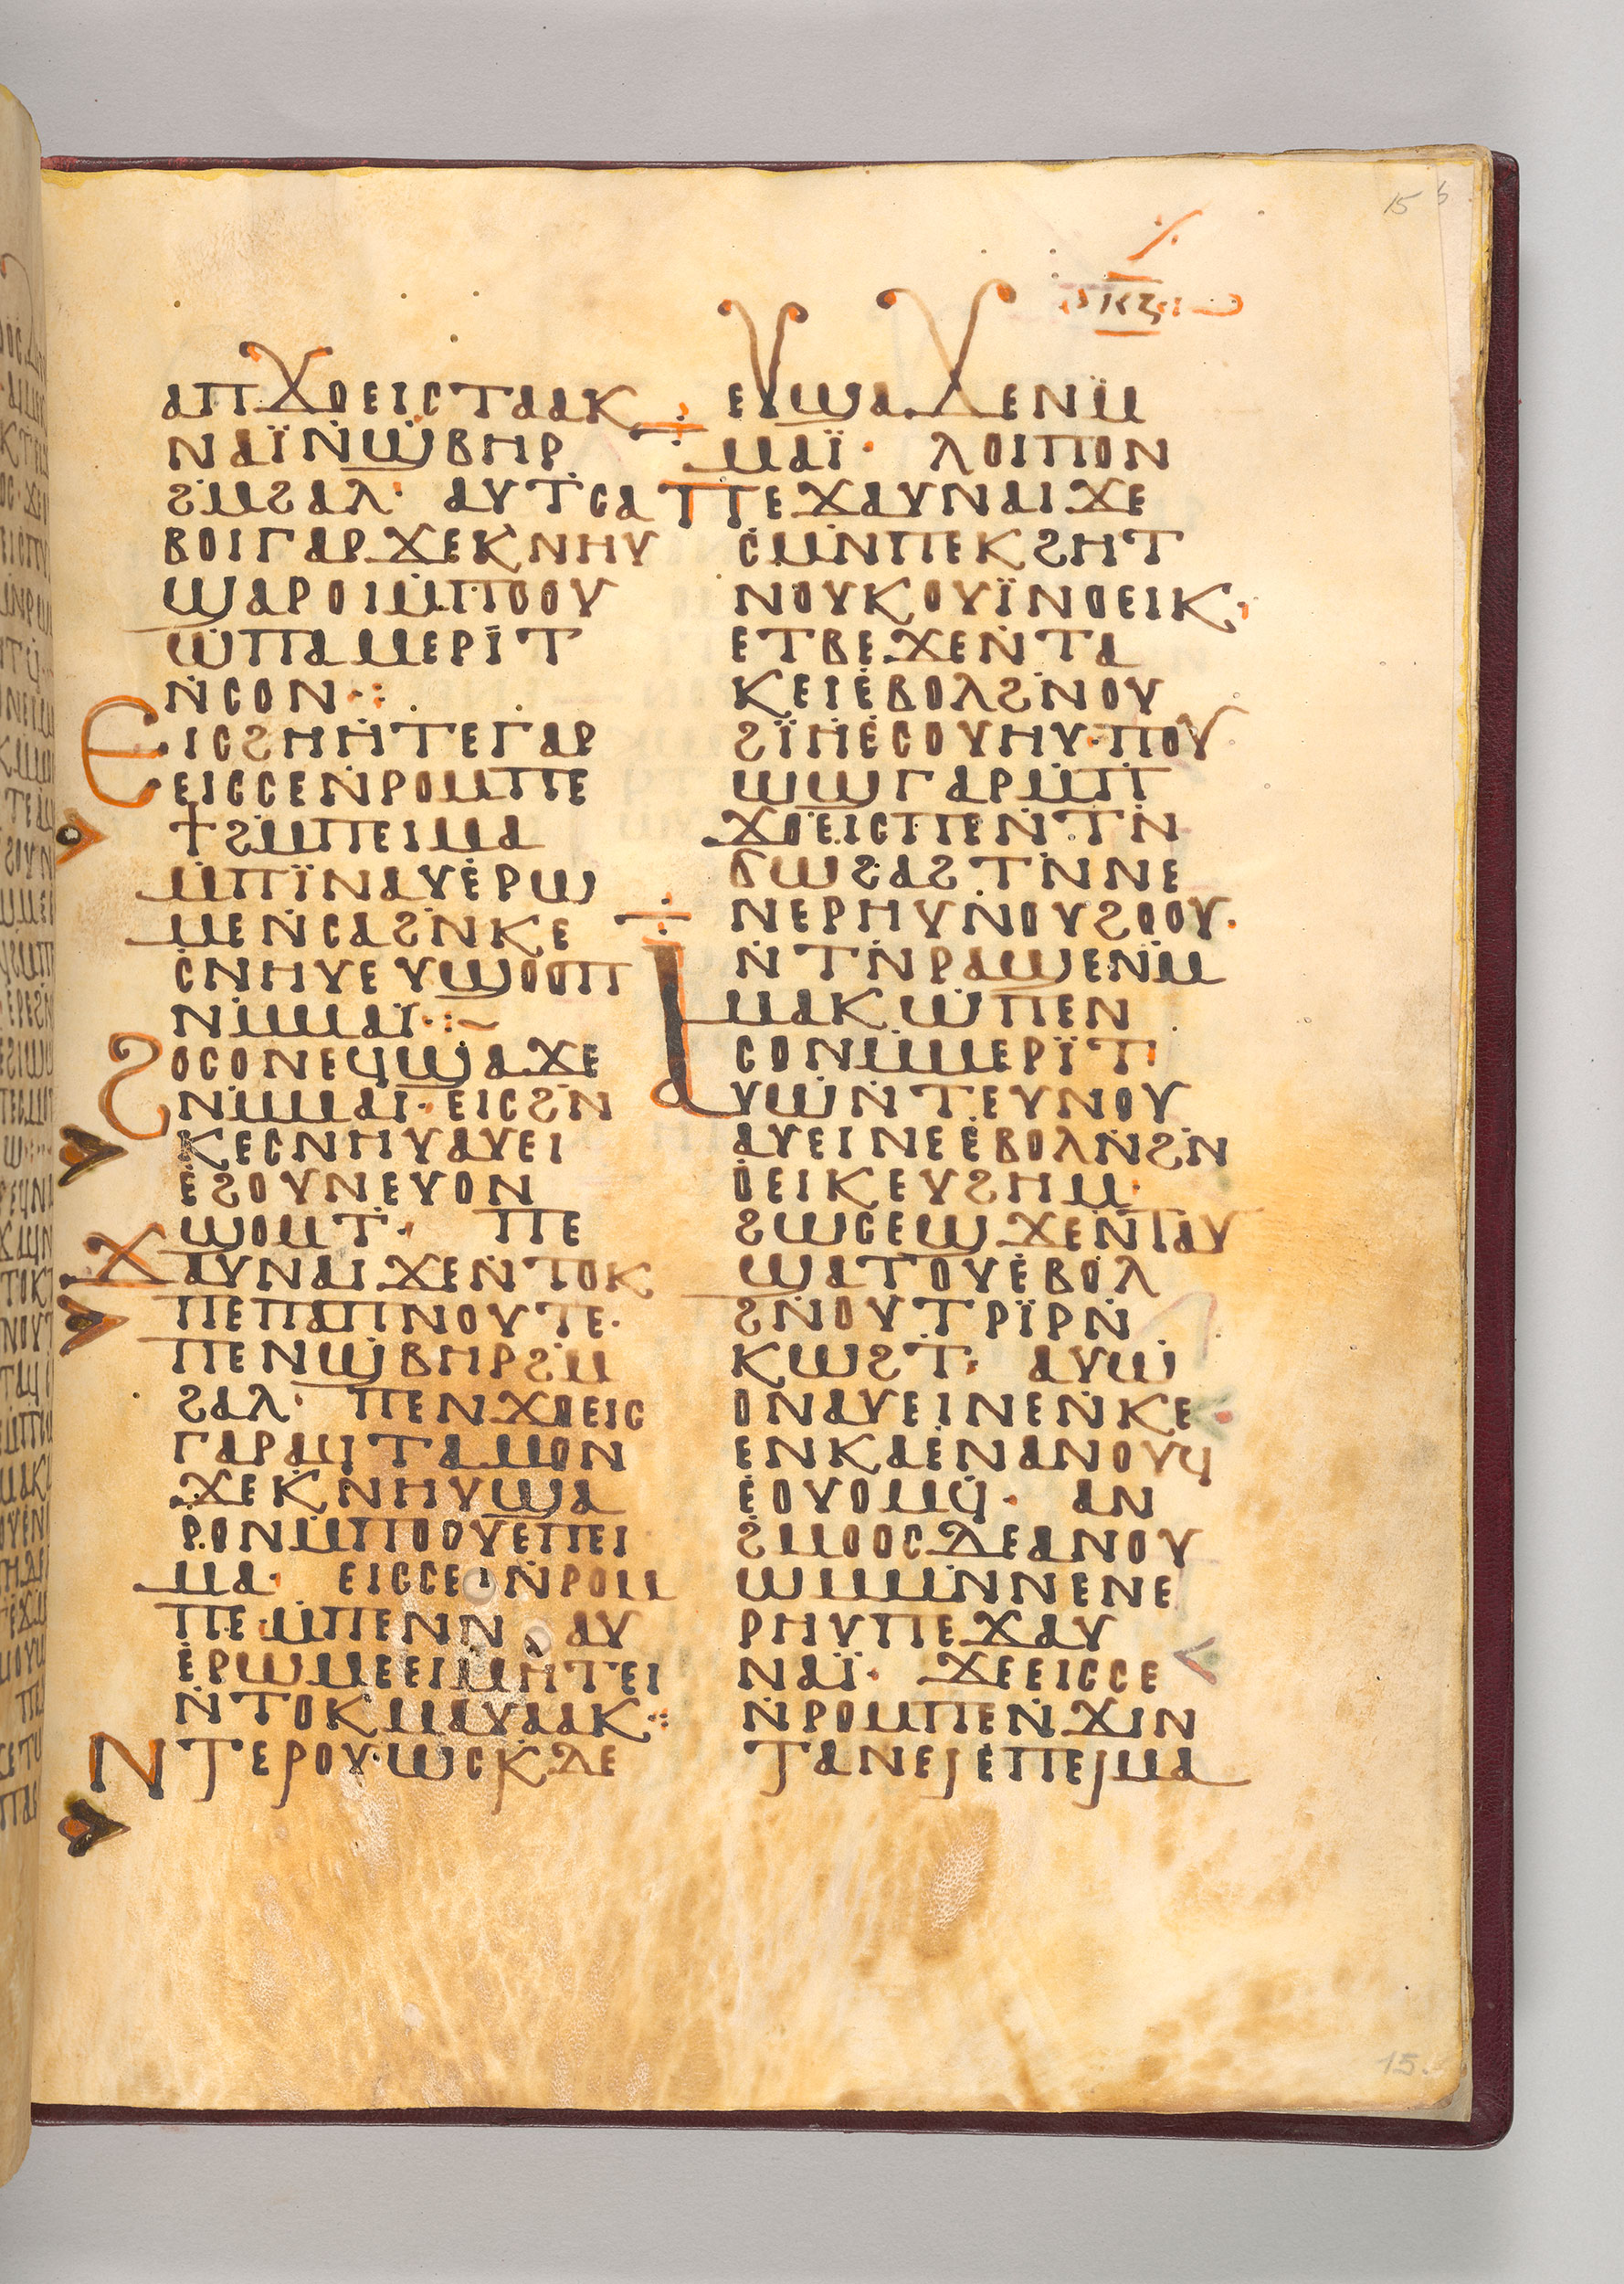 15
ⲕⲍ
ⲁⲡϫⲟⲉⲓⲥⲧⲁⲁⲕ
ⲛⲁⲓ̈ⲛ̇ϣⲃⲏⲣ
ϩⲙ̇ϩⲁⲗ· ⲁⲩⲧⲥⲁ
ⲃⲟⲓⲅⲁⲣϫⲉⲕⲛⲏⲩ
ϣⲁⲣⲟⲓⲙ̇ⲡⲟⲟⲩ
ⲱ̇ⲡⲁⲙⲉⲣⲓ̈ⲧ
ⲛ̇ⲥⲟⲛ·:
ⲉⲓⲥϩⲏⲏ̇ⲧⲉⲅⲁⲣ
ⲉⲓⲥⲥⲉⲛ̇ⲣⲟⲙⲡⲉ
ϯϩⲙ̇ⲡⲉⲓⲙⲁ
ⲙ̇ⲡⲓ̈ⲛⲁⲩⲉ̇ⲣⲱ
ⲙⲉⲛ̇ⲥⲁϩⲛ̇ⲕⲉ
ⲥⲛⲏⲩⲉⲩϣⲟⲟⲡ
ⲛⲙ̇ⲙⲁⲓ̈·:~
ϩⲟⲥⲟⲛⲉϥϣⲁϫⲉ
ⲛⲙ̇ⲙⲁⲓ· ⲉⲓⲥϩⲛ̇
ⲕⲉⲥⲛⲏⲩⲁⲩⲉⲓ
ⲉ̇ϩⲟⲩⲛⲉⲩⲟⲛ
ϣⲟⲙⲧ· ⲡⲉ
ϫⲁⲩⲛⲁⲓϫⲉⲛ̇ⲧⲟⲕ
ⲡⲉⲡⲁⲡⲛⲟⲩⲧⲉ·
ⲡⲉⲛϣⲃⲏⲣϩⲙ̇
ϩⲁⲗ· ⲡⲉⲛϫⲟⲉⲓⲥ
ⲅⲁⲣⲁϥⲧⲁⲙⲟⲛ
ϫⲉⲕⲛⲏⲩϣⲁ
ⲣⲟⲛⲙ̇ⲡⲟⲟⲩⲉⲡⲉⲓ
ⲙⲁ· ⲉⲓⲥⲥⲉⲛ̇ⲣⲟⲙ
ⲡⲉⲙ̇ⲡⲉⲛⲛⲁⲩ
ⲉ̇ⲣⲱⲙⲉⲉⲓⲙⲏ̇ⲧⲉⲓ
ⲛ̇ⲧⲟⲕⲙⲁⲩⲁⲁⲕ:·
ⲛⲧⲉⲣⲟⲩⲱⲥⲕⲇⲉ
ⲉⲩϣⲁϫⲉⲛⲙ̇
ⲙⲁⲓ̈· ⲗⲟⲓⲡⲟⲛ
ⲡⲉϫⲁⲩⲛⲁⲓϫⲉ
ⲥⲙⲛ̇ⲡⲉⲕϩⲏⲧ
ⲛⲟⲩⲕⲟⲩⲓ̈ⲛⲟⲉⲓⲕ·
ⲉⲧⲃⲉϫⲉⲛ̇ⲧⲁ
ⲕⲉⲓⲉ̇ⲃⲟⲗϩⲛ̇ⲟⲩ
ϩⲓ̈ⲏ̇ⲉ̇ⲥⲟⲩⲏⲩ·ⲡⲟⲩ
ⲱϣⲅⲁⲣⲙ̇ⲡ
ϫⲟⲉⲓⲥⲡⲉⲛ̇ⲧⲛ̇
ϭⲱϩⲁϩⲧⲛ̇ⲛⲉ
ⲛⲉⲣⲏⲩⲛ̇ⲟⲩϩⲟⲟⲩ·
ⲛ̇ⲧⲛ̇ⲣⲁϣⲉⲛⲙ̇
ⲙⲁⲕⲱ̇ⲡⲉⲛ
ⲥⲟⲛⲙ̇ⲙⲉⲣⲓ̈ⲧ
ⲁⲩⲱⲛ̇ⲧⲉⲩⲛⲟⲩ
ⲁⲩⲉⲓⲛⲉⲉ̇ⲃⲟⲗⲛ̇ϩⲛ̇
ⲟⲉⲓⲕⲉⲩϩⲏⲙ·
ϩⲱⲥⲉϣϫⲉⲛ̇ⲧⲁⲩ
ϣⲁⲧⲟⲩⲉ̇ⲃⲟⲗ
ϩⲛ̇ⲟⲩⲧⲣⲓ̈ⲣⲛ̇
ⲕⲱϩⲧ· ⲁⲩⲱ
ⲟⲛⲁⲩⲉⲓⲛⲉⲛ̇ⲕⲉ
ⲉⲛⲕⲁⲉ̇ⲛⲁⲛⲟⲩϥ
ⲉ̇ⲟⲩⲟⲙϥ̇· ⲁⲛ
ϩⲙⲟⲟⲥⲇⲉⲁⲛⲟⲩ
ⲱⲙⲙⲛ̇ⲛⲉⲛⲉ
ⲣⲏⲩⲡⲉϫⲁⲩ
ⲛⲁⲓ̈· ϫⲉⲉⲓⲥⲥⲉ
ⲛ̇ⲣⲟⲙⲡⲉⲛ̇ϫⲓⲛ
ⲧⲁⲛⲉⲓⲉ̇ⲡⲉⲓⲙⲁ
15